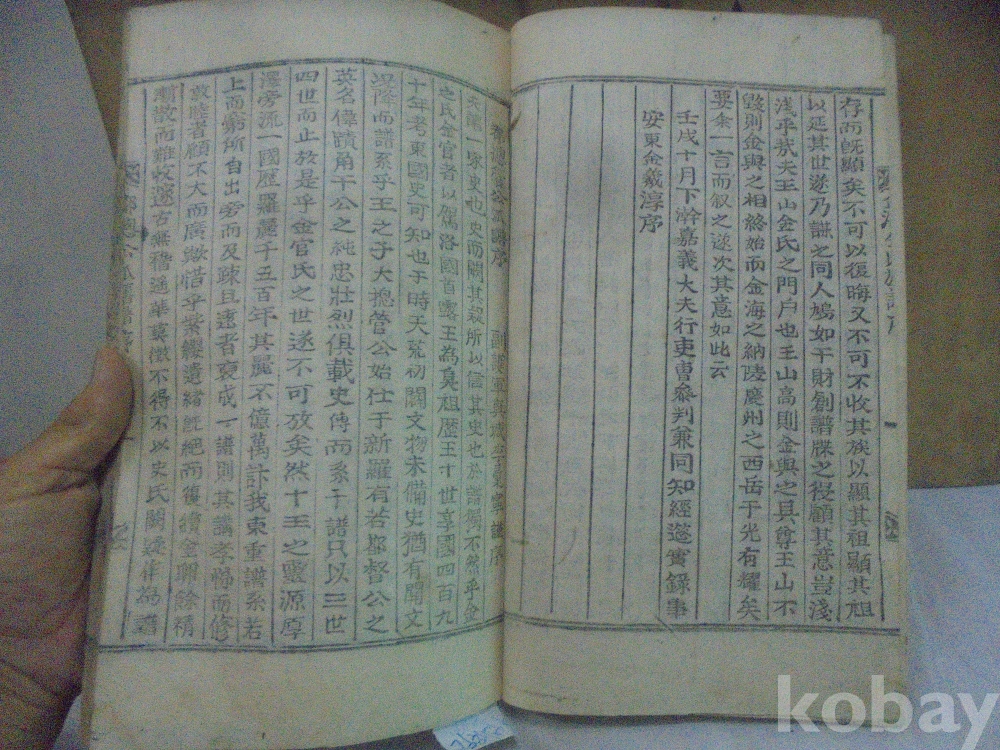 存而旣顯矣不可以復晦又不可不收其族以顯其祖顯其祖
以延其世遂乃謀之同人鳩如干財創譜牒之役顧其意豈淺
淺乎哉夫王山金氏之門戶也王山高則金與之具尊王山不
毁則金與之相終始而金海之納陵慶州之西岳于光有耀矣
要余一言而叙之遂次其意如此云
壬戌十月下澣嘉義大夫行吏曹參判兼同知經筵實錄事
安東金羲淳序
夫譜一家史也史而闕其疑所以信其史也於譜獨不然乎金
之氏金官者以駕洛國首露王為鼻祖歷王十世享國四百九
十年考東國史可知也于時天荒初闢文物未備史猶有闕文
降而譜系乎王之子大摠管公始仕于新羅有若都督公之
英名偉蹟角干公之純忠壯烈俱載史傳而系于譜只以三世
四世而止故是乎金官氏之世遂不可放矣然十王之靈源厚
澤旁流一國歷羅麗千五百年其麗不億萬計我東重譜系若
上而窮所自出旁而及疎且遠者裒成一譜則其講孝悌而修
敦睦者顧不大而廣歟惜乎縈纓遺緖旣絕而復續金聊餘精
漸散而難收遂方無稽逋華莫徵不得不以史氏闕疑作為譜
kobay